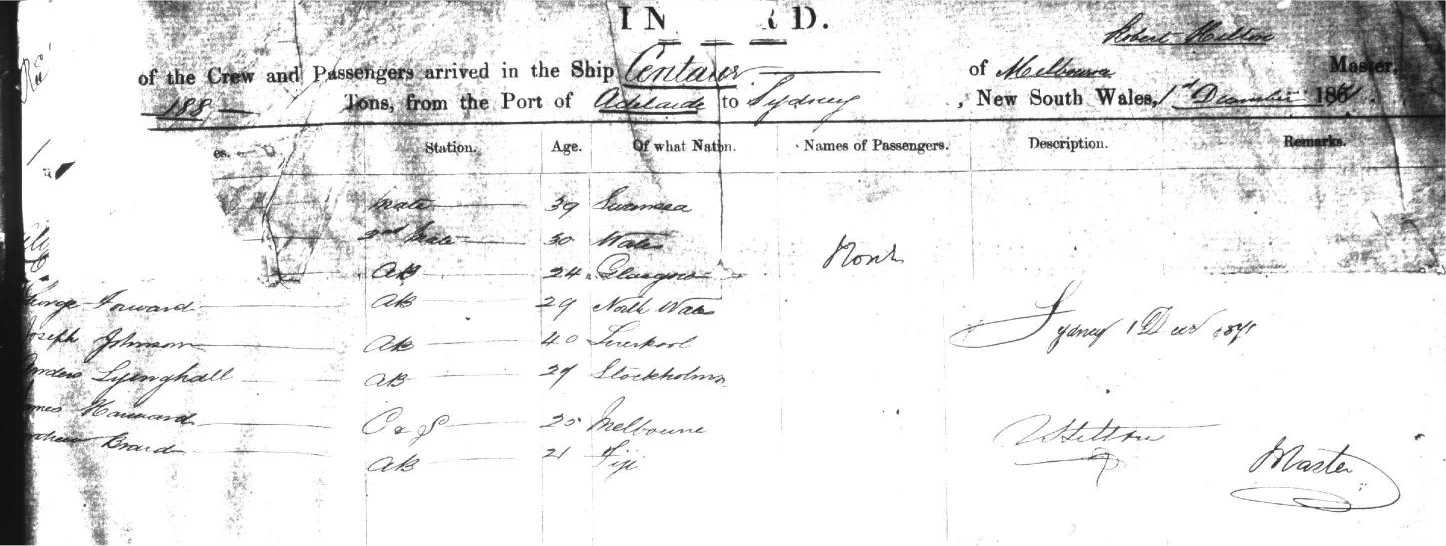 IN RD.
Robert Hilton
of the Crew and Passengers arrived in the Ship Centaur of Melbourne Master,
188 Tons, from the Port of Adelaide to Sydney, New South Wales, 1st December 1871.
es. Station. Age. Of what Nation. Names of Passengers. Description. Remarks.
Mate 39 Swansea
2nd Mate 30 Wales
AB 24 Glasgow
George Forward AB 29 North Wales
Joseph Johnson AB 40 Liverpool
Anders AB 29 Stockholm
James Hayward C & S 25 Melbourne
Andrew Braid AB 21 Fiji
Sydney 1 Decr 1871
Hilton
Master